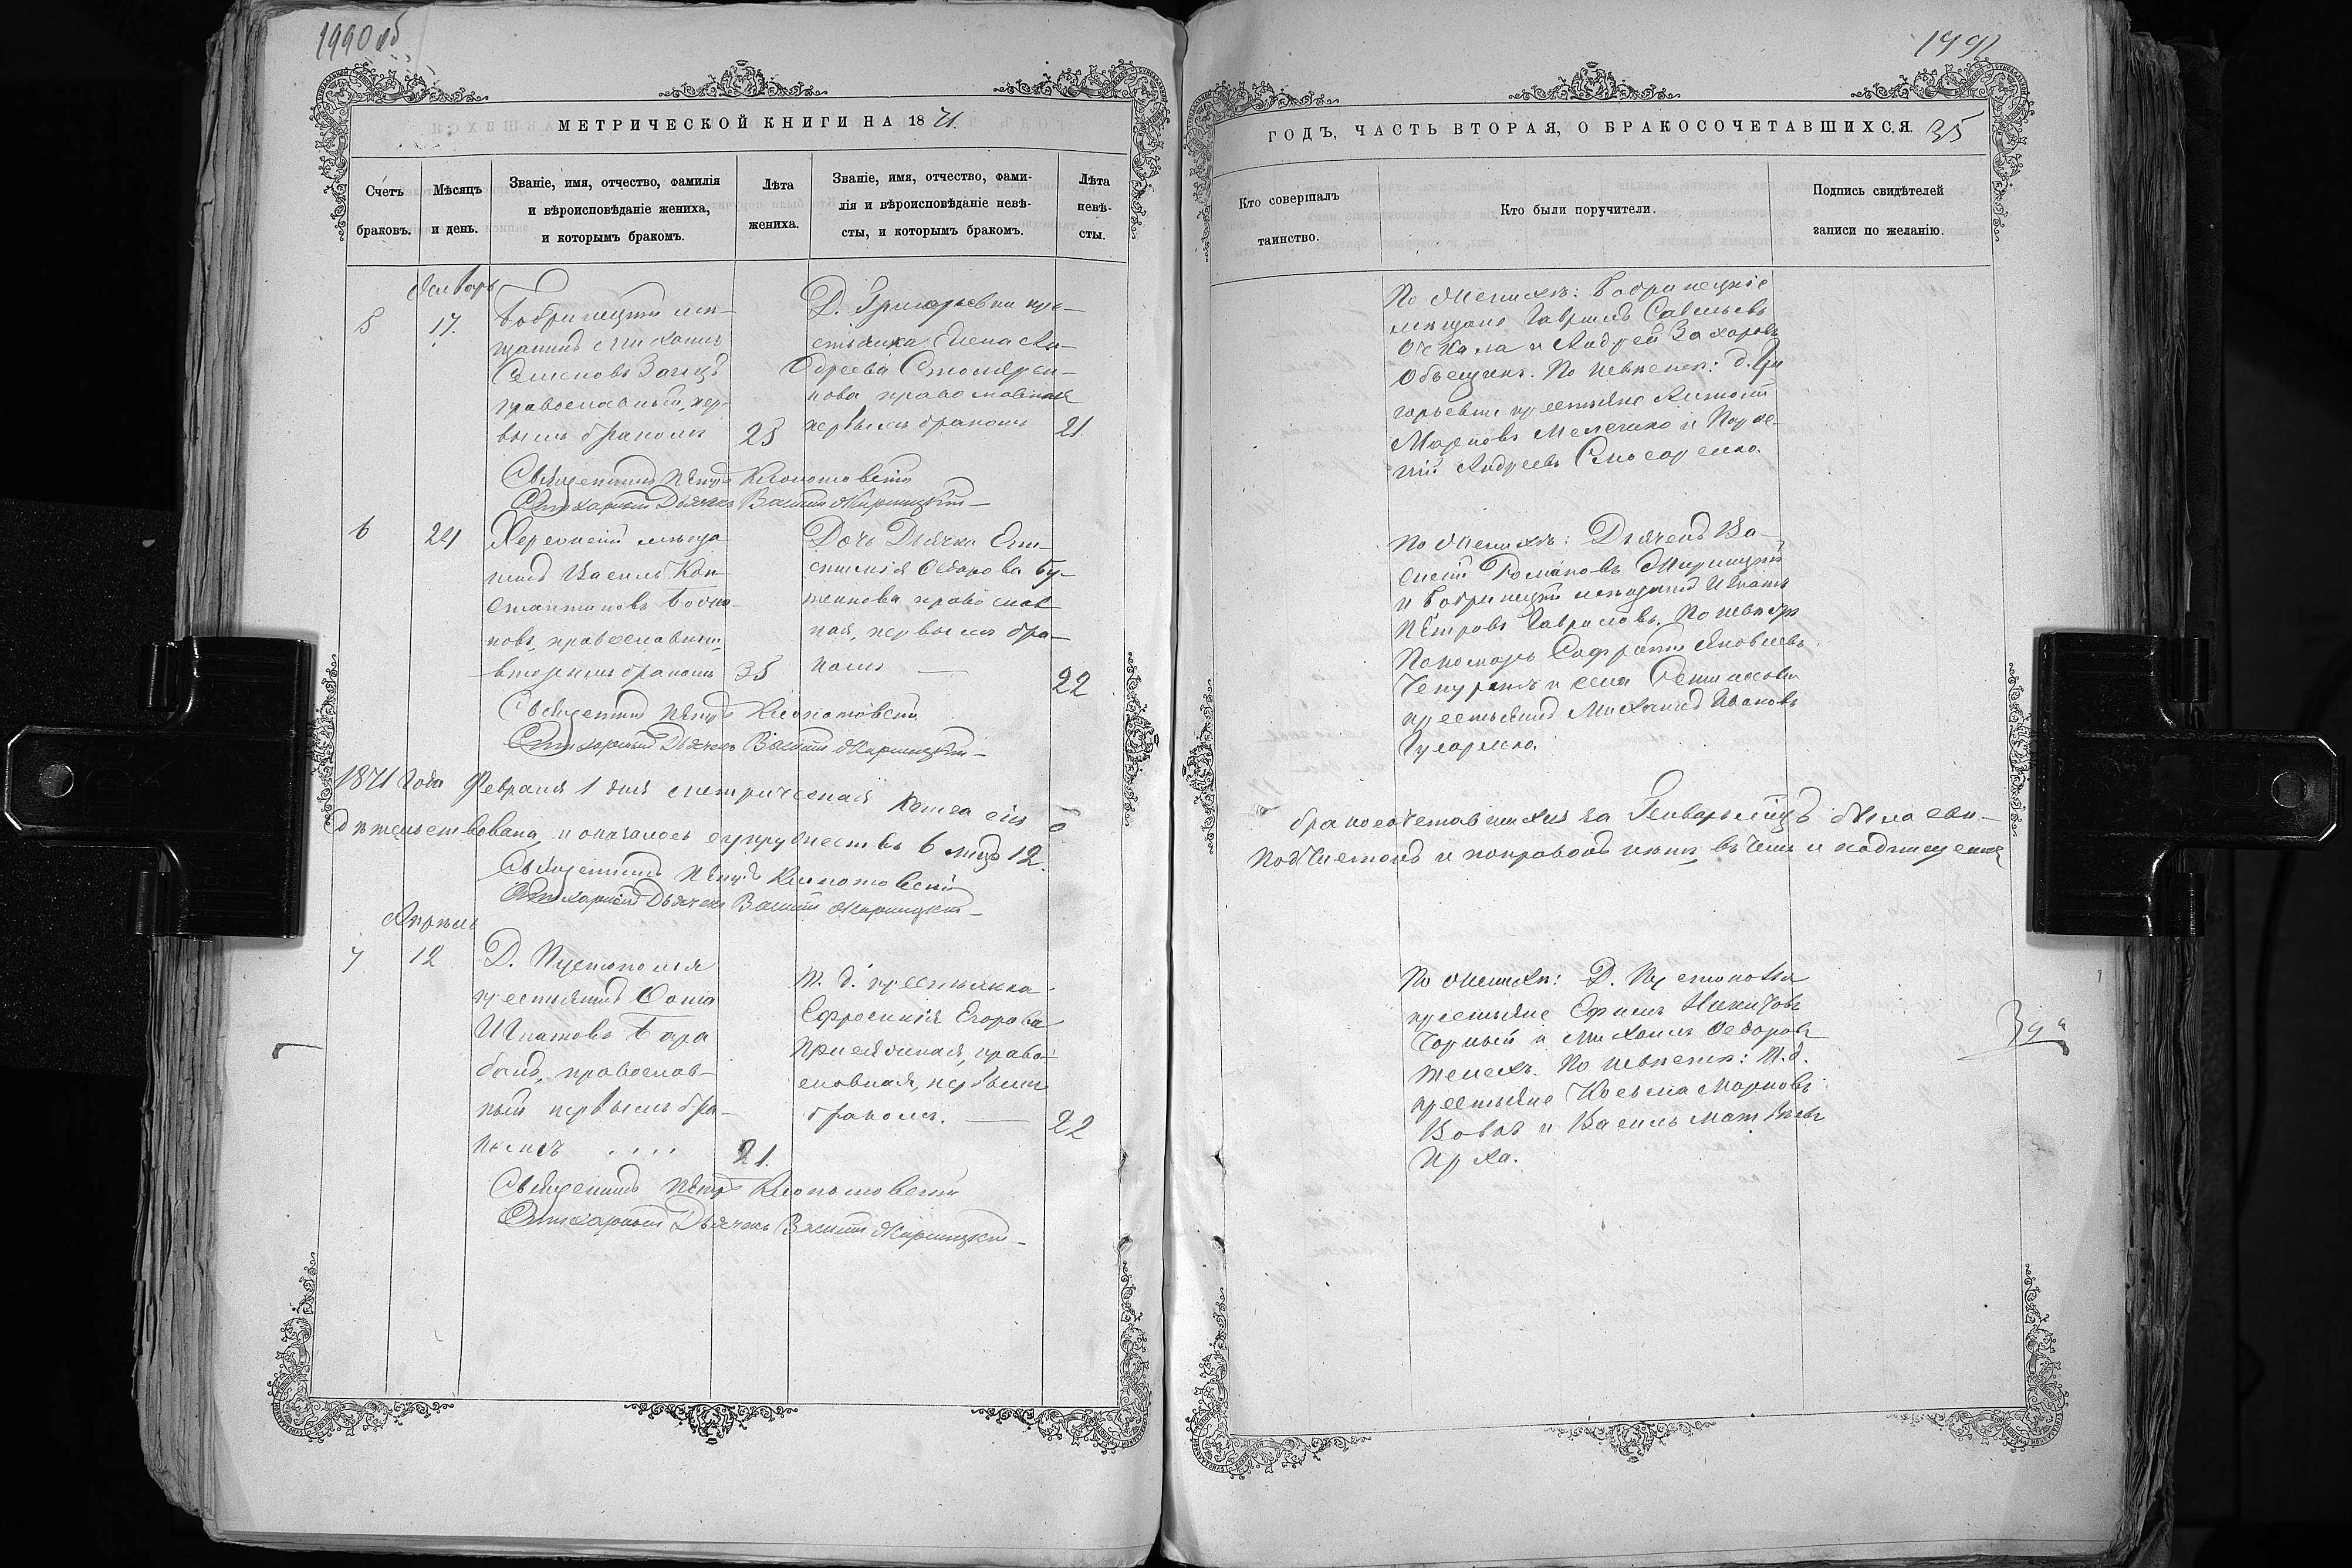 1990 об
МЕТРИЧЕСКОЙ КНИГИ НА 1871.
Счетъ браковъ.
Мѣсяцъ и день.
Званіе, имя, отчество, фамилія
и вѣроисповѣданіе жениха,
и которымъ бракомъ.
Лѣта
жениха.
Званіе, имя, отчество, фами-
лія и вѣроисповѣданіе невѣ-
сты, и которымъ бракомъ.
Лѣта
невѣ-
сты.
5
17.
Бобринецкій мѣ-
щанинъ Михаилъ
Семеновъ Заицъ
православный, пер-
вымъ бракомъ
25
Д. Григорьевки кре-
стьянка Елена Ан-
дреева
нова православная
первымъ бракомъ
21.
Священникъ Петръ Клопотовскій
Стихарный Дьячекъ Василій Жирицкій
6
24
Херсонскій мѣща-
нинъ Василь Кон-
стантиновъ
новъ, православный,
вторымъ бракомъ
35
Дочь Дьячка
Федорова Бу-
женкова, православ
ная, первымъ бра-
комъ —
22
Священникъ Петръ Клопотовскій
Стихарный Дьячекъ Василій Жирицкій
1871 Года Февраля 1 дня метрическая книга сія о
дѣтельствована, и оказалось супружествъ 6 лицъ 12.
Священникъ Петръ Клопотовскій
Стихарный Дьячекъ Василій Жирицкій
Апрѣль
7
12
Д. Пустополья
крестьянинъ Фома
Игнатовъ Бара
банъ, православ-
ный первымъ бра-
комъ . . . .
21.
т. д. крестьянка
Ефросинія Егорова
право-
славная, первымъ
бракомъ. —
22
Священникъ Петръ Клопотовскій
Стихарный Дьячекъ Василій Жирицкій
1991
ГОДЪ, ЧАСТЬ ВТОРАЯ, О БРАКОСОЧЕТАВШИХСЯ. 35
Кто совершалъ
таинство.
Кто были поручители.
Подпись свидѣтелей
записи по желанію.
По женихѣ: Бобринецкіе
мѣщане Гаврилъ Савельевъ
и Андрей Захаровъ
По невѣстѣ: д. Гри
горьевки крестьяне
Марковъ и
Андреевъ
По женихѣ: Дьячекъ Ва-
силій Романовъ Жирицкій
и Бобринецкій мѣщанинъ Игнатъ
Петровъ Гавриловъ. По невѣстѣ
Пономарь Яковлевъ
и села
крестьянинъ Михаилъ Ивановъ
бракосочетавшихся за Генварь мѣсяцъ была сви-
и поправокъ нѣтъ, въ чемъ и подписуемся
По женихѣ: Д. Пустополья
крестьяне Ефимъ Никитовъ
Чорный и Михаилъ Федоровъ
По невѣстѣ: т. д.
крестьяне Косьма Марковъ
Вовкъ и Василь Матвѣевъ